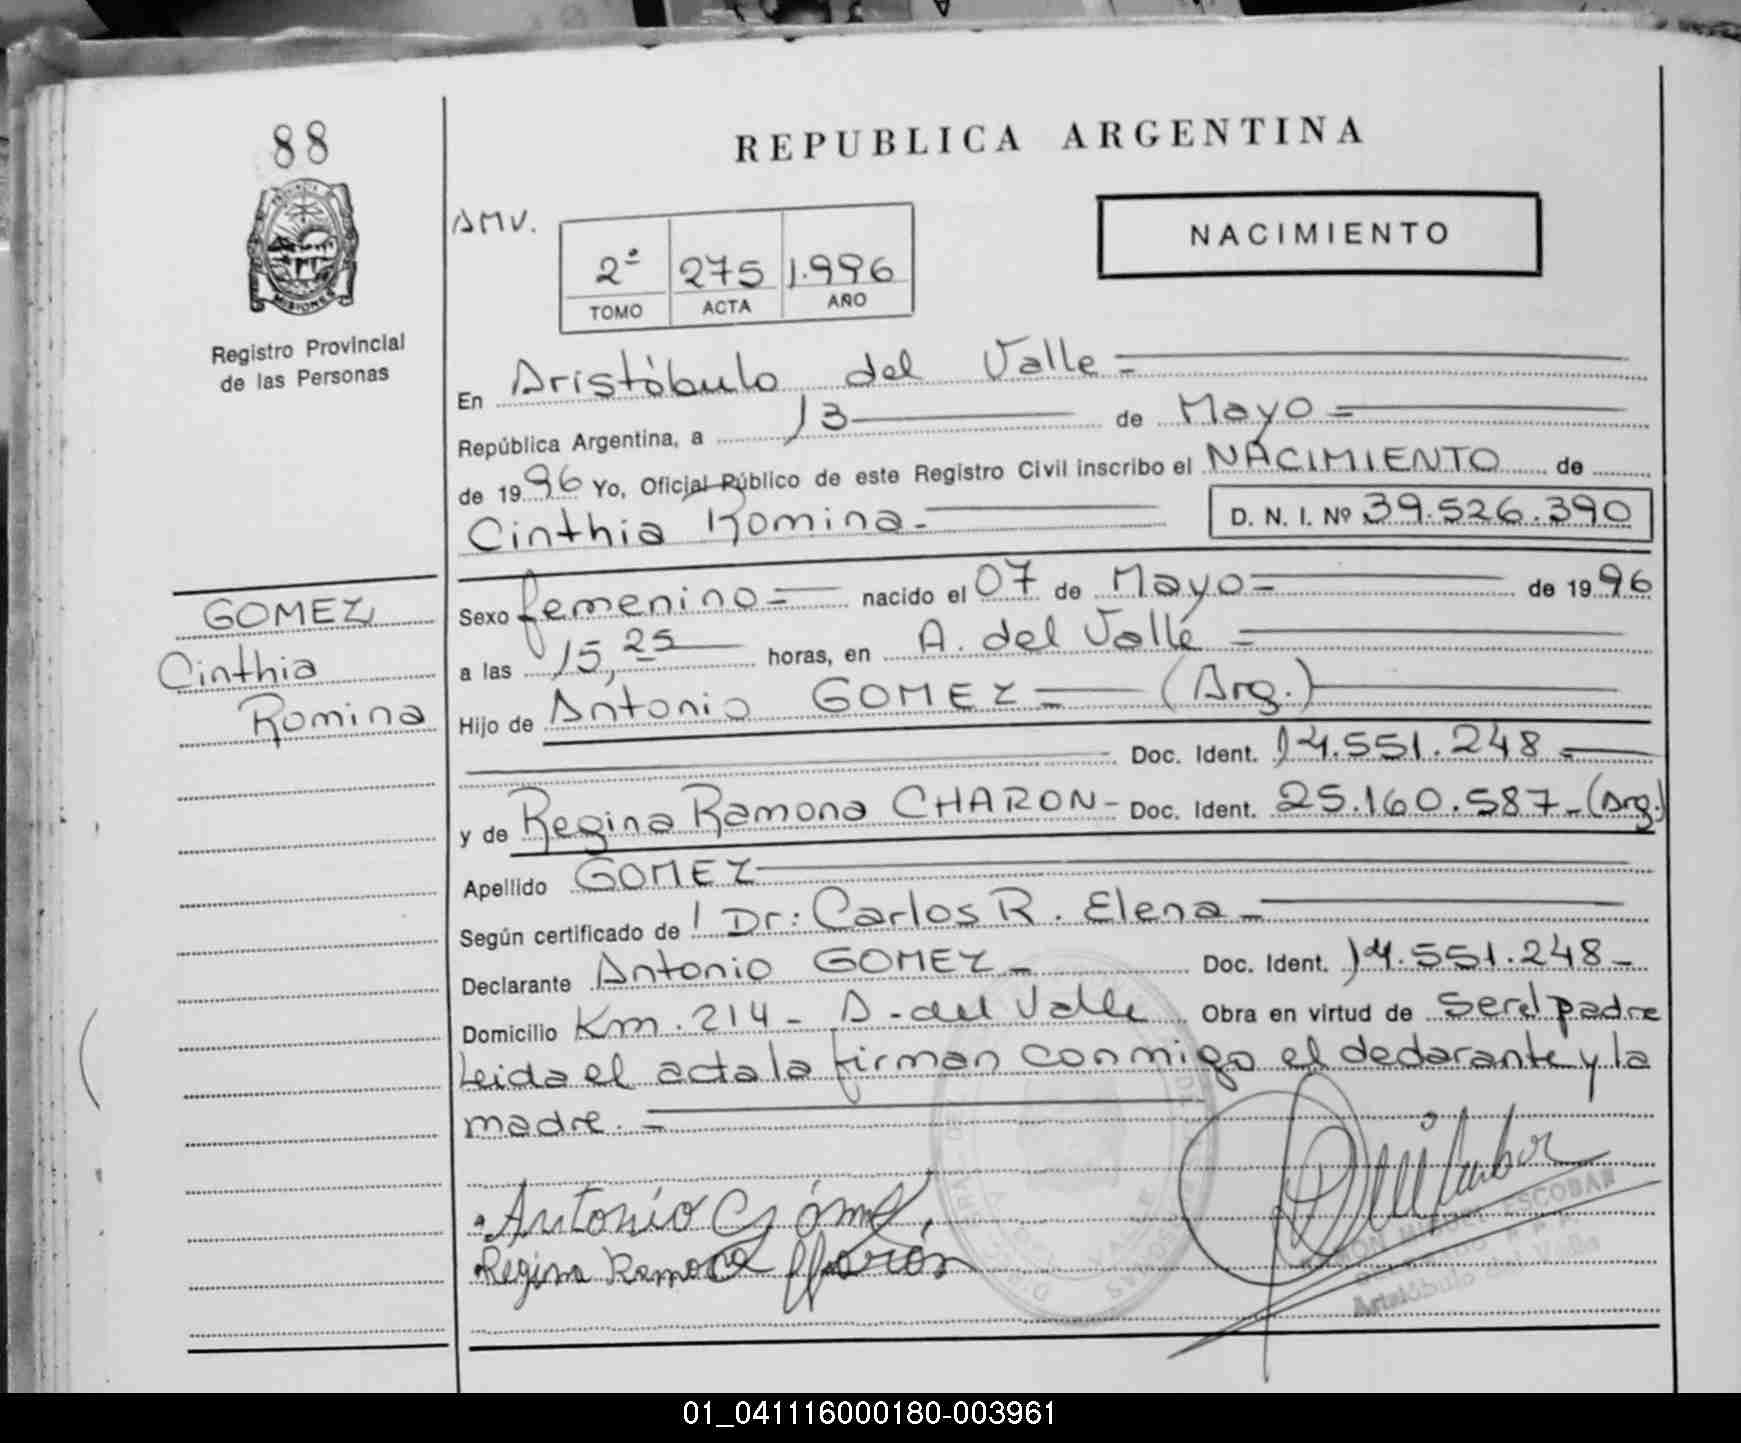 88
MISIONES
Registro Provincial
de las Personas
GOMEZ
Cinthia
Romina
REPUBLICA ARGENTINA
AMV.
2º 275 1.996
TOMO ACTA AÑO
NACIMIENTO
En Aristóbulo del Valle =
República Argentina, a 13 de Mayo =
de 1996 Yo, Oficial Público de este Registro Civil inscribo el NACIMIENTO de
Cinthia Romina - D. N. I. Nº 39.526.390
Sexo femenino = nacido el 07 de Mayo = de 1996
a las 15,25 horas, en A. del Valle =
Hijo de Antonio GOMEZ = (Arg.)
Doc. Ident. 14.551.248 =
y de Regina Ramona CHARON - Doc. Ident. 25.160.587 - (Arg.)
Apellido GOMEZ
Según certificado de Dr: Carlos R. Elena -
Declarante Antonio GOMEZ - Doc. Ident. 14.551.248 -
Domicilio Km. 214 - A. del Valle Obra en virtud de ser el padre
Leida el acta la firman conmigo el declarante y la
madre. =
Antonio Gómez
Regina Ramona Charón
RAMON MIGUEL ESCOBAR
Aristóbulo del Valle
01_041116000180-003961